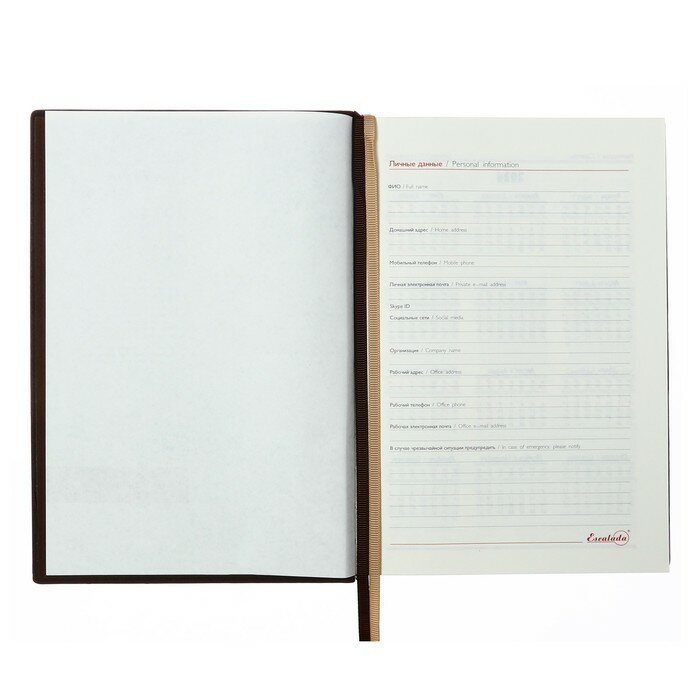 Личные данные / Personal information
ФИО / Full name
Домашний адрес / Home address
Мобильный телефон / Mobile phone
Личная электронная почта / Private e-mail address
Skype ID
Социальные сети / Social media
Организация / Company name
Рабочий адрес / Office address
Рабочий телефон / Office phone
Рабочая электронная почта / Office e-mail address
В случае чрезвычайной ситуации предупредить / In case of emergency, please notify
Escalada